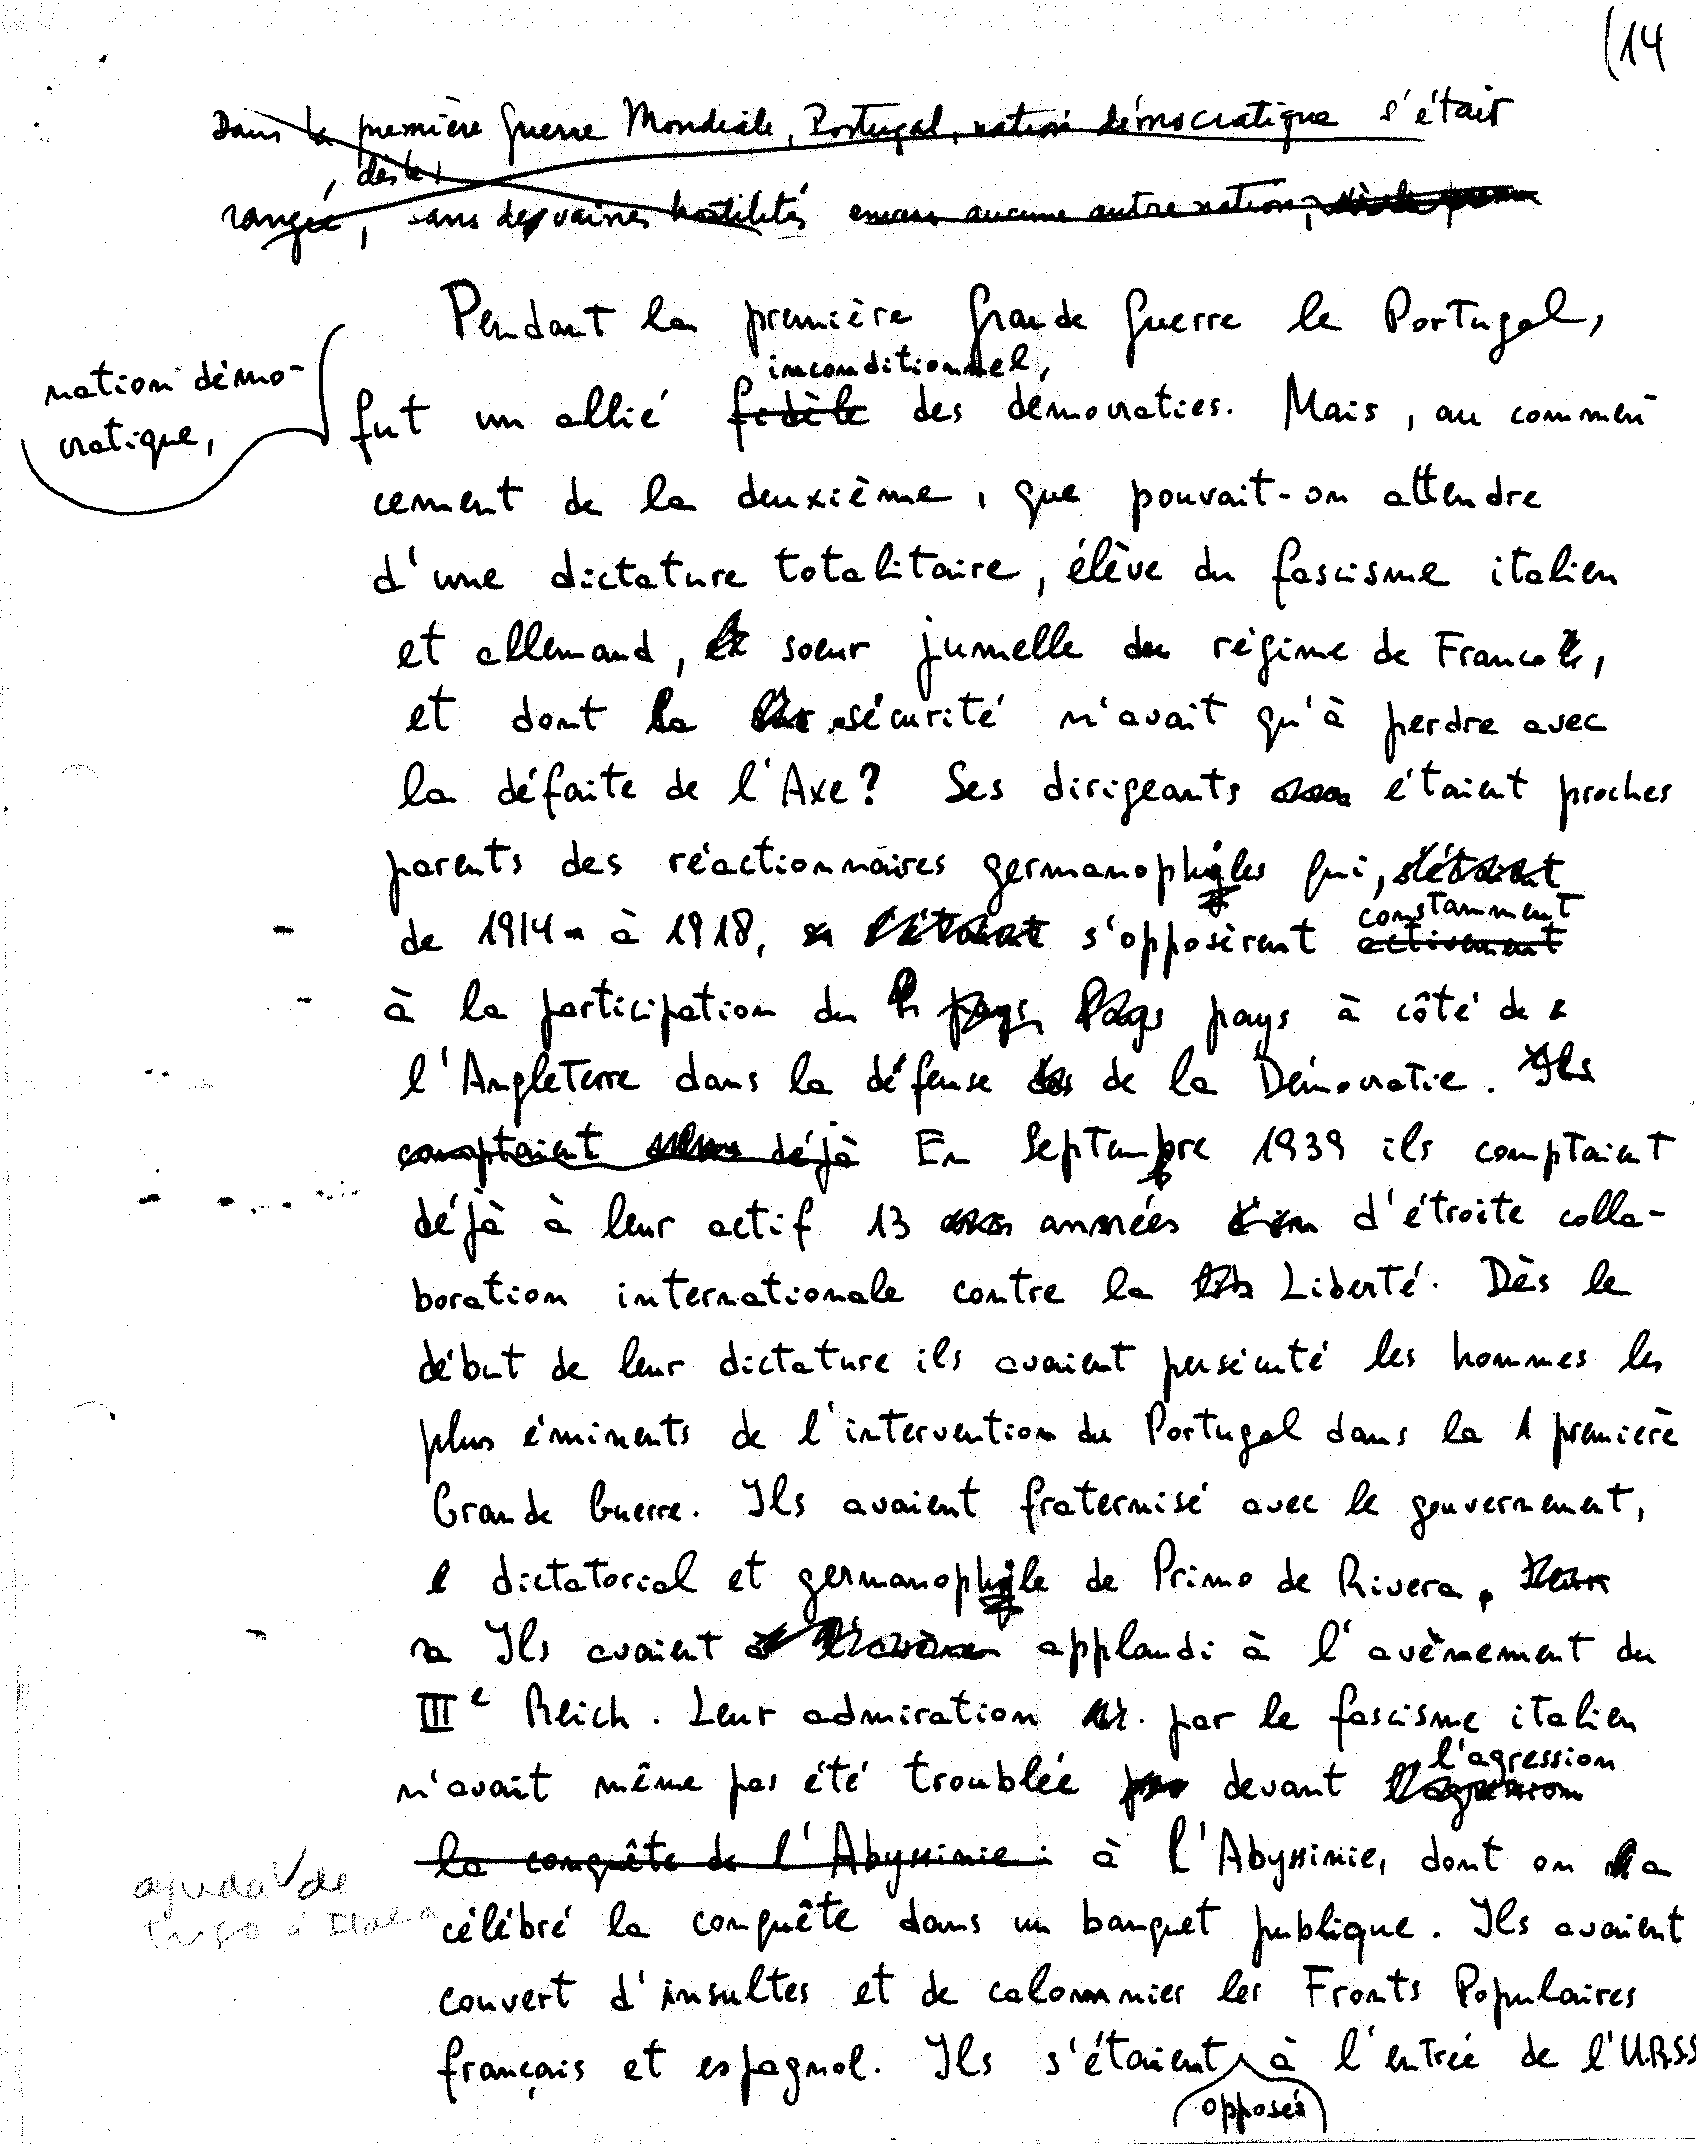 (14
Dans la première guerre Mondiale, Portugal, nation démocratique s'était
, dès le,
rangée, sans des vaines hostilités envers aucune autre nation,
Pendant la première Grande Guerre le Portugal,
nation démo-
cratique,
inconditionnel,
fut un allié fidèle des démocraties. Mais, au commen
cement de la deuxième, que pouvait-on attendre
d'une dictature totalitaire, élève du fascisme italien
et allemand, soeur jumelle du régime de Franco,
et dont la sécurité n'avait qu'à perdre avec
la défaite de l'Axe? Ses dirigeants étaient proches
parents des réactionnaires germanophiles qui, s'étaient
constamment
de 1914 à 1918, s'étaient s'opposèrent activement
à la participation du pays pays pays à côté de
l'Angleterre dans la défense de la Démocratie. Ils
comptaient déjà En Septembre 1939 ils comptaient
déjà à leur actif 13 années d'étroite colla-
boration internationale contre la Liberté. Dès le
début de leur dictature ils avaient persécuté les hommes les
plus éminents de l'intervention du Portugal dans la 1 première
Grande Guerre. Ils avaient fraternisé avec le gouvernement,
dictatorial et germanophile de Primo de Rivera,
Ils avaient applaudi à l'avènement du
IIIe Reich. Leur admiration par le fascisme italien
l'agression
n'avait même pas été troublée devant l'agression
la conquête de l'Abyssinie: à l'Abyssinie, dont on a
ajuda de
trigo à Italia
célébré la conquête dans un banquet publique. Ils avaient
couvert d'insultes et de calomnies les Fronts Populaires
français et espagnol. Ils s'étaient à l'entrée de l'U.R.S.S
opposés